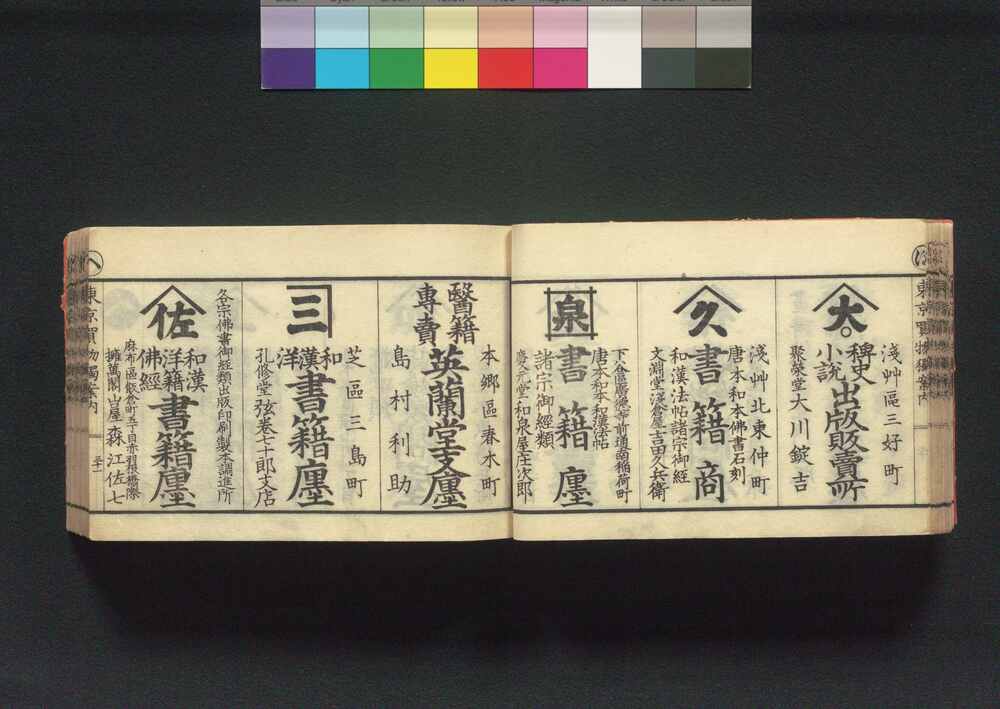 淺艸區三好町
大
稗史
小説
出版販賣所
聚榮堂大川錠吉
淺艸北東仲町
唐本和本佛書石刻
久
書籍商
和漢法帖諸宗御經
文淵堂淺倉屋吉田久兵衛
下谷區
前通南稲荷町
唐本和本和漢法帖
泉
書籍廛
諸宗御經類
慶元堂和泉屋庄次郎
本郷區春木町
醫籍
專賣
英蘭堂支廛
島村利助
芝區三島町
三
和
漢
洋
書籍廛
孔修堂弦巻七十郎支店
各宗佛書御經類出版印刷製本調進所
佐
和漢
洋籍
佛經
書籍廛
麻布區飯倉町五丁目赤羽根橋際
擁萬閣
森江佐七
東京買物獨案内